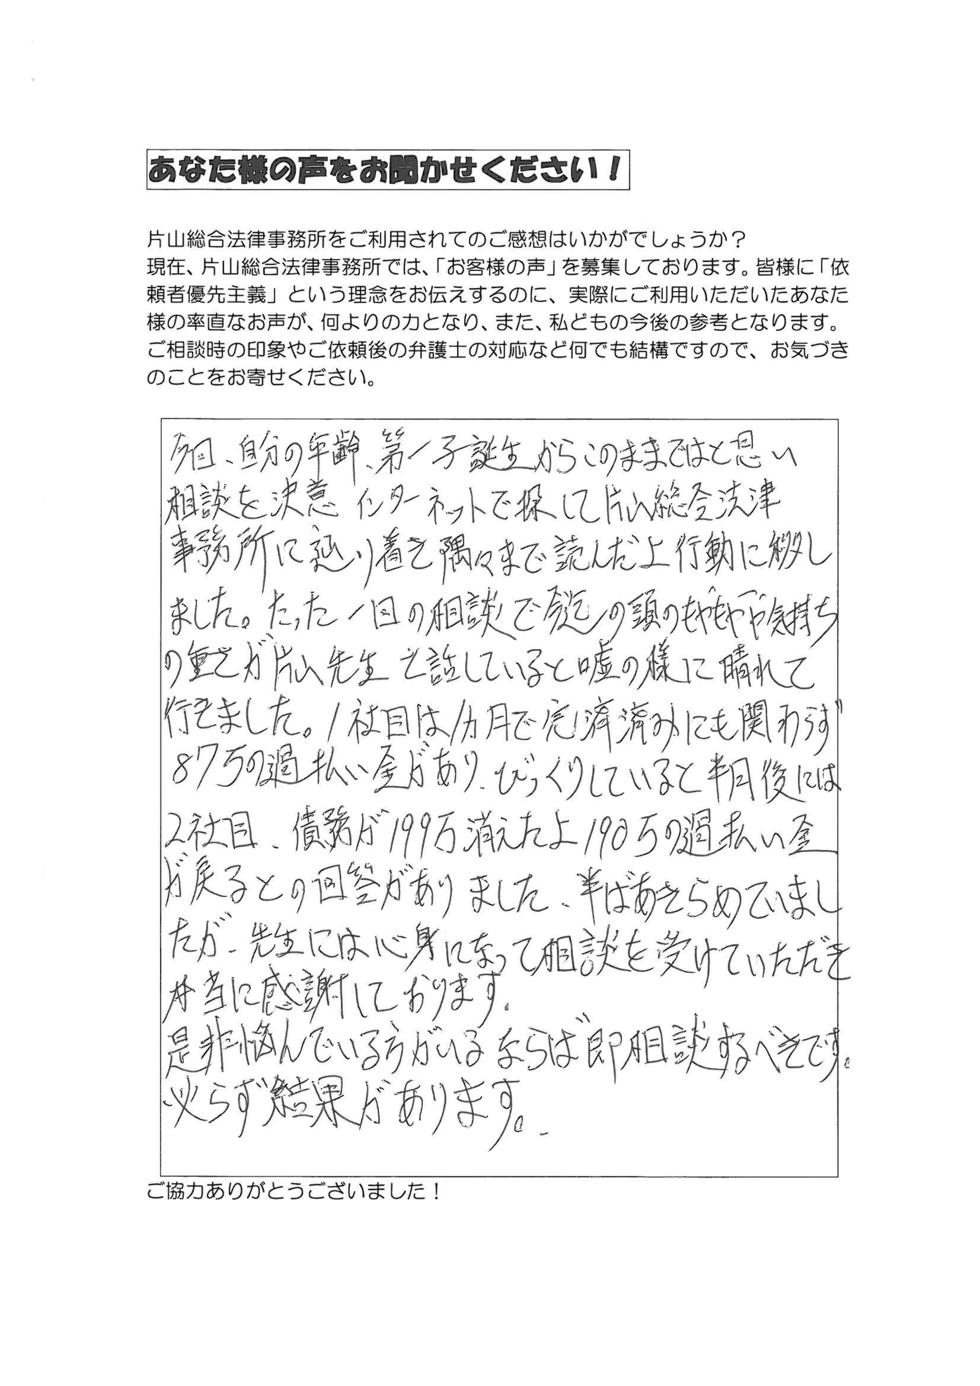 あなた様の声をお聞かせください！
片山総合法律事務所をご利用されてのご感想はいかがでしょうか？
現在、片山総合法律事務所では、「お客様の声」を募集しております。皆様に「依
頼者優先主義」という理念をお伝えするのに、実際にご利用いただいたあなた
様の率直なお声が、何よりの力となり、また、私どもの今後の参考となります。
ご相談時の印象やご依頼後の弁護士の対応など何でも結構ですので、お気づき
のことをお寄せください。
今回、自分の年齢、第一子誕生からこのままではと思い
相談を決意 インターネットで探して片山総合法律
事務所に辿り着き隅々まで読んだ上行動に移し
ました。たった一回の相談で の頭のもやもやや気持ち
の重さが片山先生と話していると嘘の様に晴れて
行きました。1社目は1ヵ月で完済済みにも関わらず
87万の過払い金があり、びっくりしていると半月後には
2社目、債務が199万消えた上190万の過払い金
が戻るとの回答がありました、半ばあきらめていまし
たが、先生には心身になって相談を受けていただき
本当に感謝しております。
是非悩んでいる方がいるならば即相談するべきです。
必らず結果があります。
ご協力ありがとうございました！